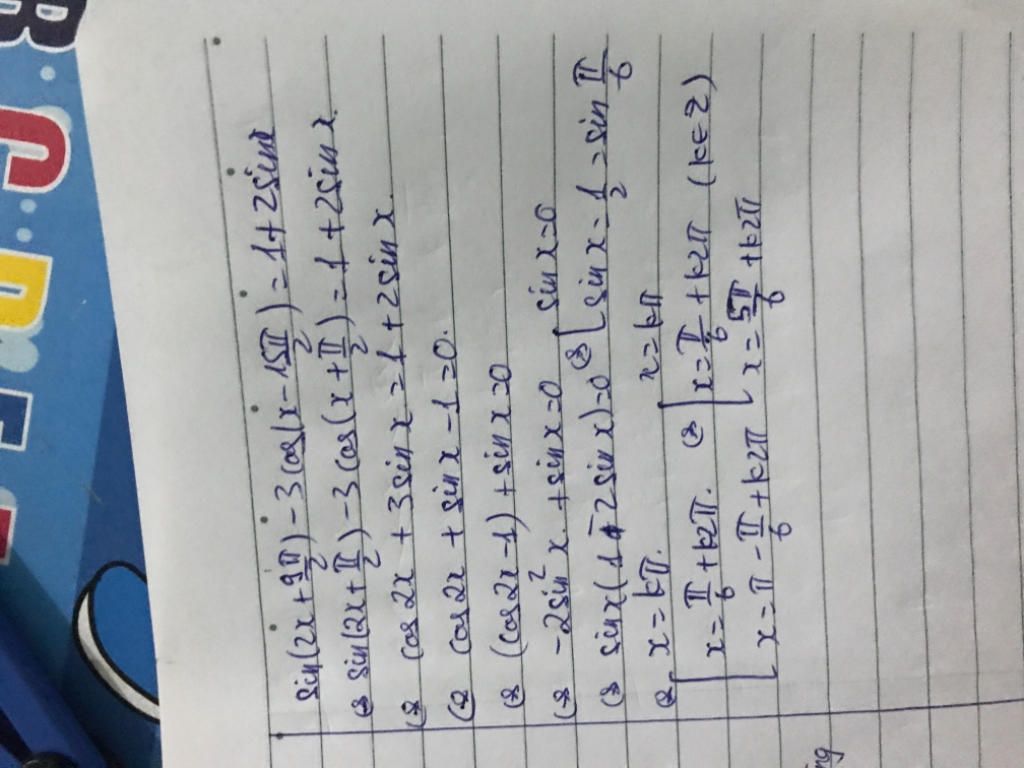 sin(2x + 9π/2) - 3cos(x - 15π/2) = 1 + 2sinx
⇔ sin(2x + π/2) - 3cos(x + π/2) = 1 + 2sin x.
⇔ cos2x + 3sinx = 1 + 2sinx.
⇔ cos2x + sinx - 1 = 0.
⇔ (cos2x - 1) + sinx = 0
⇔ -2sin²x. + sinx = 0
⇔ sinx(1 - 2sinx) = 0 ⇔ [ sinx = 0
sinx = 1/2 = sin π/6
⇔ [ x = kπ.
x = π/6 + k2π.
x = π - π/6 + k2π
⇔ [ x = kπ
x = π/6 + k2π (k ∈ Z)
x = 5π/6 + k2π